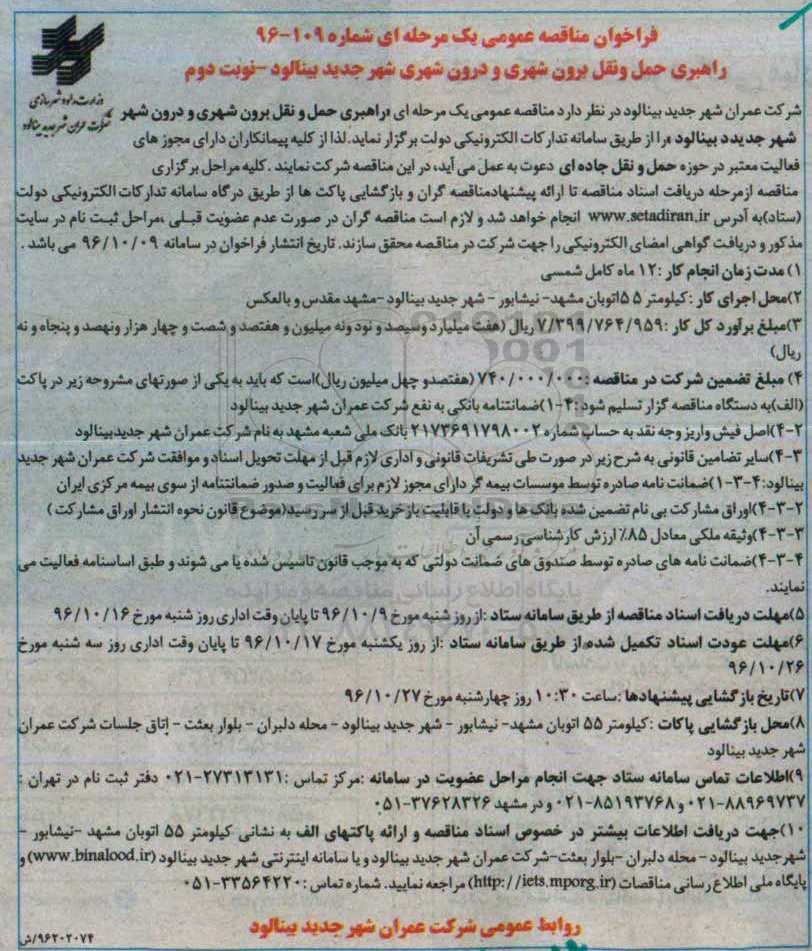 فراخوان مناقصه عمومی یک مرحله ای شماره ۱۰۹-۹۶
راهبری حمل ونقل برون شهری و درون شهری شهر جدید بینالود -نوبت دوم
وزارت راه و شهرسازی
شرکت عمران شهر جدید بینالود
شرکت عمران شهر جدید بینالود در نظر دارد مناقصه عمومی یک مرحله ای «راهبری حمل و نقل برون شهری و درون شهر
شهر جدیدد بینالود »را از طریق سامانه تدارکات الکترونیکی دولت برگزار نماید.لذا از کلیه پیمانکاران دارای مجوز های
فعالیت معتبر در حوزه حمل و نقل جاده ای دعوت به عمل می آید، در این مناقصه شرکت نمایند .کلیه مراحل برگزاری
مناقصه ازمرحله دریافت اسناد مناقصه تا ارائه پیشنهادمناقصه گران و بازگشایی پاکت ها از طریق درگاه سامانه تدارکات الکترونیکی دولت
(ستاد)به آدرس www.setadiran.ir انجام خواهد شد و لازم است مناقصه گران در صورت عدم عضویت قبلی ،مراحل ثبت نام در سایت
مذکور و دریافت گواهی امضای الکترونیکی را جهت شرکت در مناقصه محقق سازند. تاریخ انتشار فراخوان در سامانه ۹۶/۱۰/۰۹ می باشد .
۱) مدت زمان انجام کار :۱۲ ماه کامل شمسی
۲)محل اجرای کار :کیلومتر ۵۵اتوبان مشهد- نیشابور - شهر جدید بینالود -مشهد مقدس و بالعکس
۳)مبلغ برآورد کل کار :۷/۳۹۹/۷۶۴/۹۵۹ ریال (هفت میلیارد وسیصد و نود ونه میلیون و هفتصد و شصت و چهار هزار ونهصد و پنجاه و نه
ریال)
۴) مبلغ تضمین شرکت در مناقصه :۷۴۰/۰۰۰/۰۰۰ (هفتصدو چهل میلیون ریال)است که باید به یکی از صورتهای مشروحه زیر در پاکت
(الف)به دستگاه مناقصه گزار تسلیم شود :۴-۱)ضمانتنامه بانکی به نفع شرکت عمران شهر جدید بینالود
۴-۲)اصل فیش واریز وجه نقد به حساب شماره ۲۱۷۳۶۹۱۷۹۸۰۰۲ بانک ملی شعبه مشهد به نام شرکت عمران شهر جدیدبینالود
۴-۳)سایر تضامین قانونی به شرح زیر در صورت طی تشریفات قانونی و اداری لازم قبل از مهلت تحویل اسناد و موافقت شرکت عمران شهر جدید
بینالود:۴-۳-۱)ضمانت نامه صادره توسط موسسات بیمه گر دارای مجوز لازم برای فعالیت و صدور ضمانتنامه از سوی بیمه مرکزی ایران
۴-۳-۲)اوراق مشارکت بی نام تضمین شده بانک ها و دولت با قابلیت بازخرید قبل از سررسید(موضوع قانون نحوه انتشار اوراق مشارکت )
۴-۳-۳)وثیقه ملکی معادل ۸۵٪ ارزش کارشناسی رسمی آن
۴-۳-۴)ضمانت نامه های صادره توسط صندوق های ضمانت دولتی که به موجب قانون تاسیس شده یا می شوند و طبق اساسنامه فعالیت می
نمایند.
۵)مهلت دریافت اسناد مناقصه از طریق سامانه ستاد :از روز شنبه مورخ ۹۶/۱۰/۹ تا پایان وقت اداری روز شنبه مورخ ۹۶/۱۰/۱۶
۶)مهلت عودت اسناد تکمیل شده از طریق سامانه ستاد :از روز یکشنبه مورخ ۹۶/۱۰/۱۷ تا پایان وقت اداری روز سه شنبه مورخ
۹۶/۱۰/۲۶
۷)تاریخ بازگشایی پیشنهادها :ساعت ۱۰:۳۰ روز چهارشنبه مورخ ۹۶/۱۰/۲۷
۸)محل بازگشایی پاکات :کیلومتر ۵۵ اتوبان مشهد- نیشابور - شهر جدید بینالود - محله دلبران - بلوار بعثت - اتاق جلسات شرکت عمران
شهر جدید بینالود
۹)اطلاعات تماس سامانه ستاد جهت انجام مراحل عضویت در سامانه :مرکز تماس :۲۷۳۱۳۱۳۱-۰۲۱ دفتر ثبت نام در تهران :
۸۸۹۶۹۷۳۷-۰۲۱ و ۸۵۱۹۳۷۶۸-۰۲۱ و در مشهد ۳۷۶۲۸۳۲۶-۰۵۱
۱۰)جهت دریافت اطلاعات بیشتر در خصوص اسناد مناقصه و ارائه پاکتهای الف به نشانی کیلومتر ۵۵ اتوبان مشهد -نیشابور -
شهرجدید بینالود - محله دلبران -بلوار بعثت-شرکت عمران شهر جدید بینالود و یا سامانه اینترنتی شهر جدید بینالود (www.binalood.ir) و
پایگاه ملی اطلاع رسانی مناقصات (http://iets.mporg.ir) مراجعه نمایید. شماره تماس :۳۳۵۶۴۲۲۰-۰۵۱
روابط عمومی شرکت عمران شهر جدید بینالود
۹۶۲۰۲۰۷۴/ش